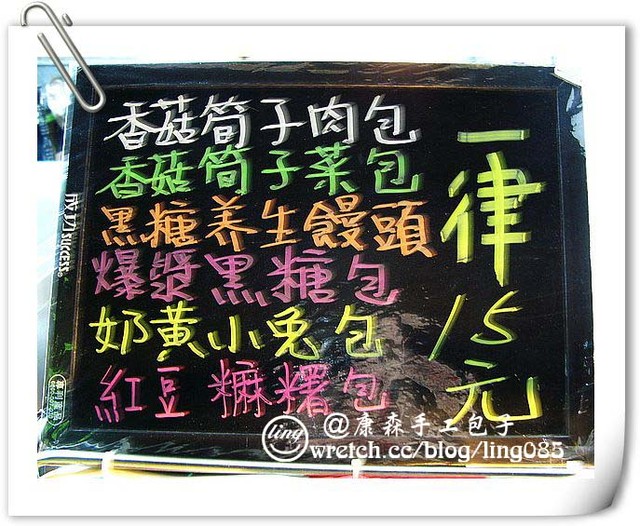 香菇筍子肉包
香菇筍子菜包
黑糖养生饅頭
爆漿黑糖包
奶黃小兔包
紅豆麻糬包
一律15元
成功SUCCESS
ling
@康森手工包子
wretch.cc/blog/ling085